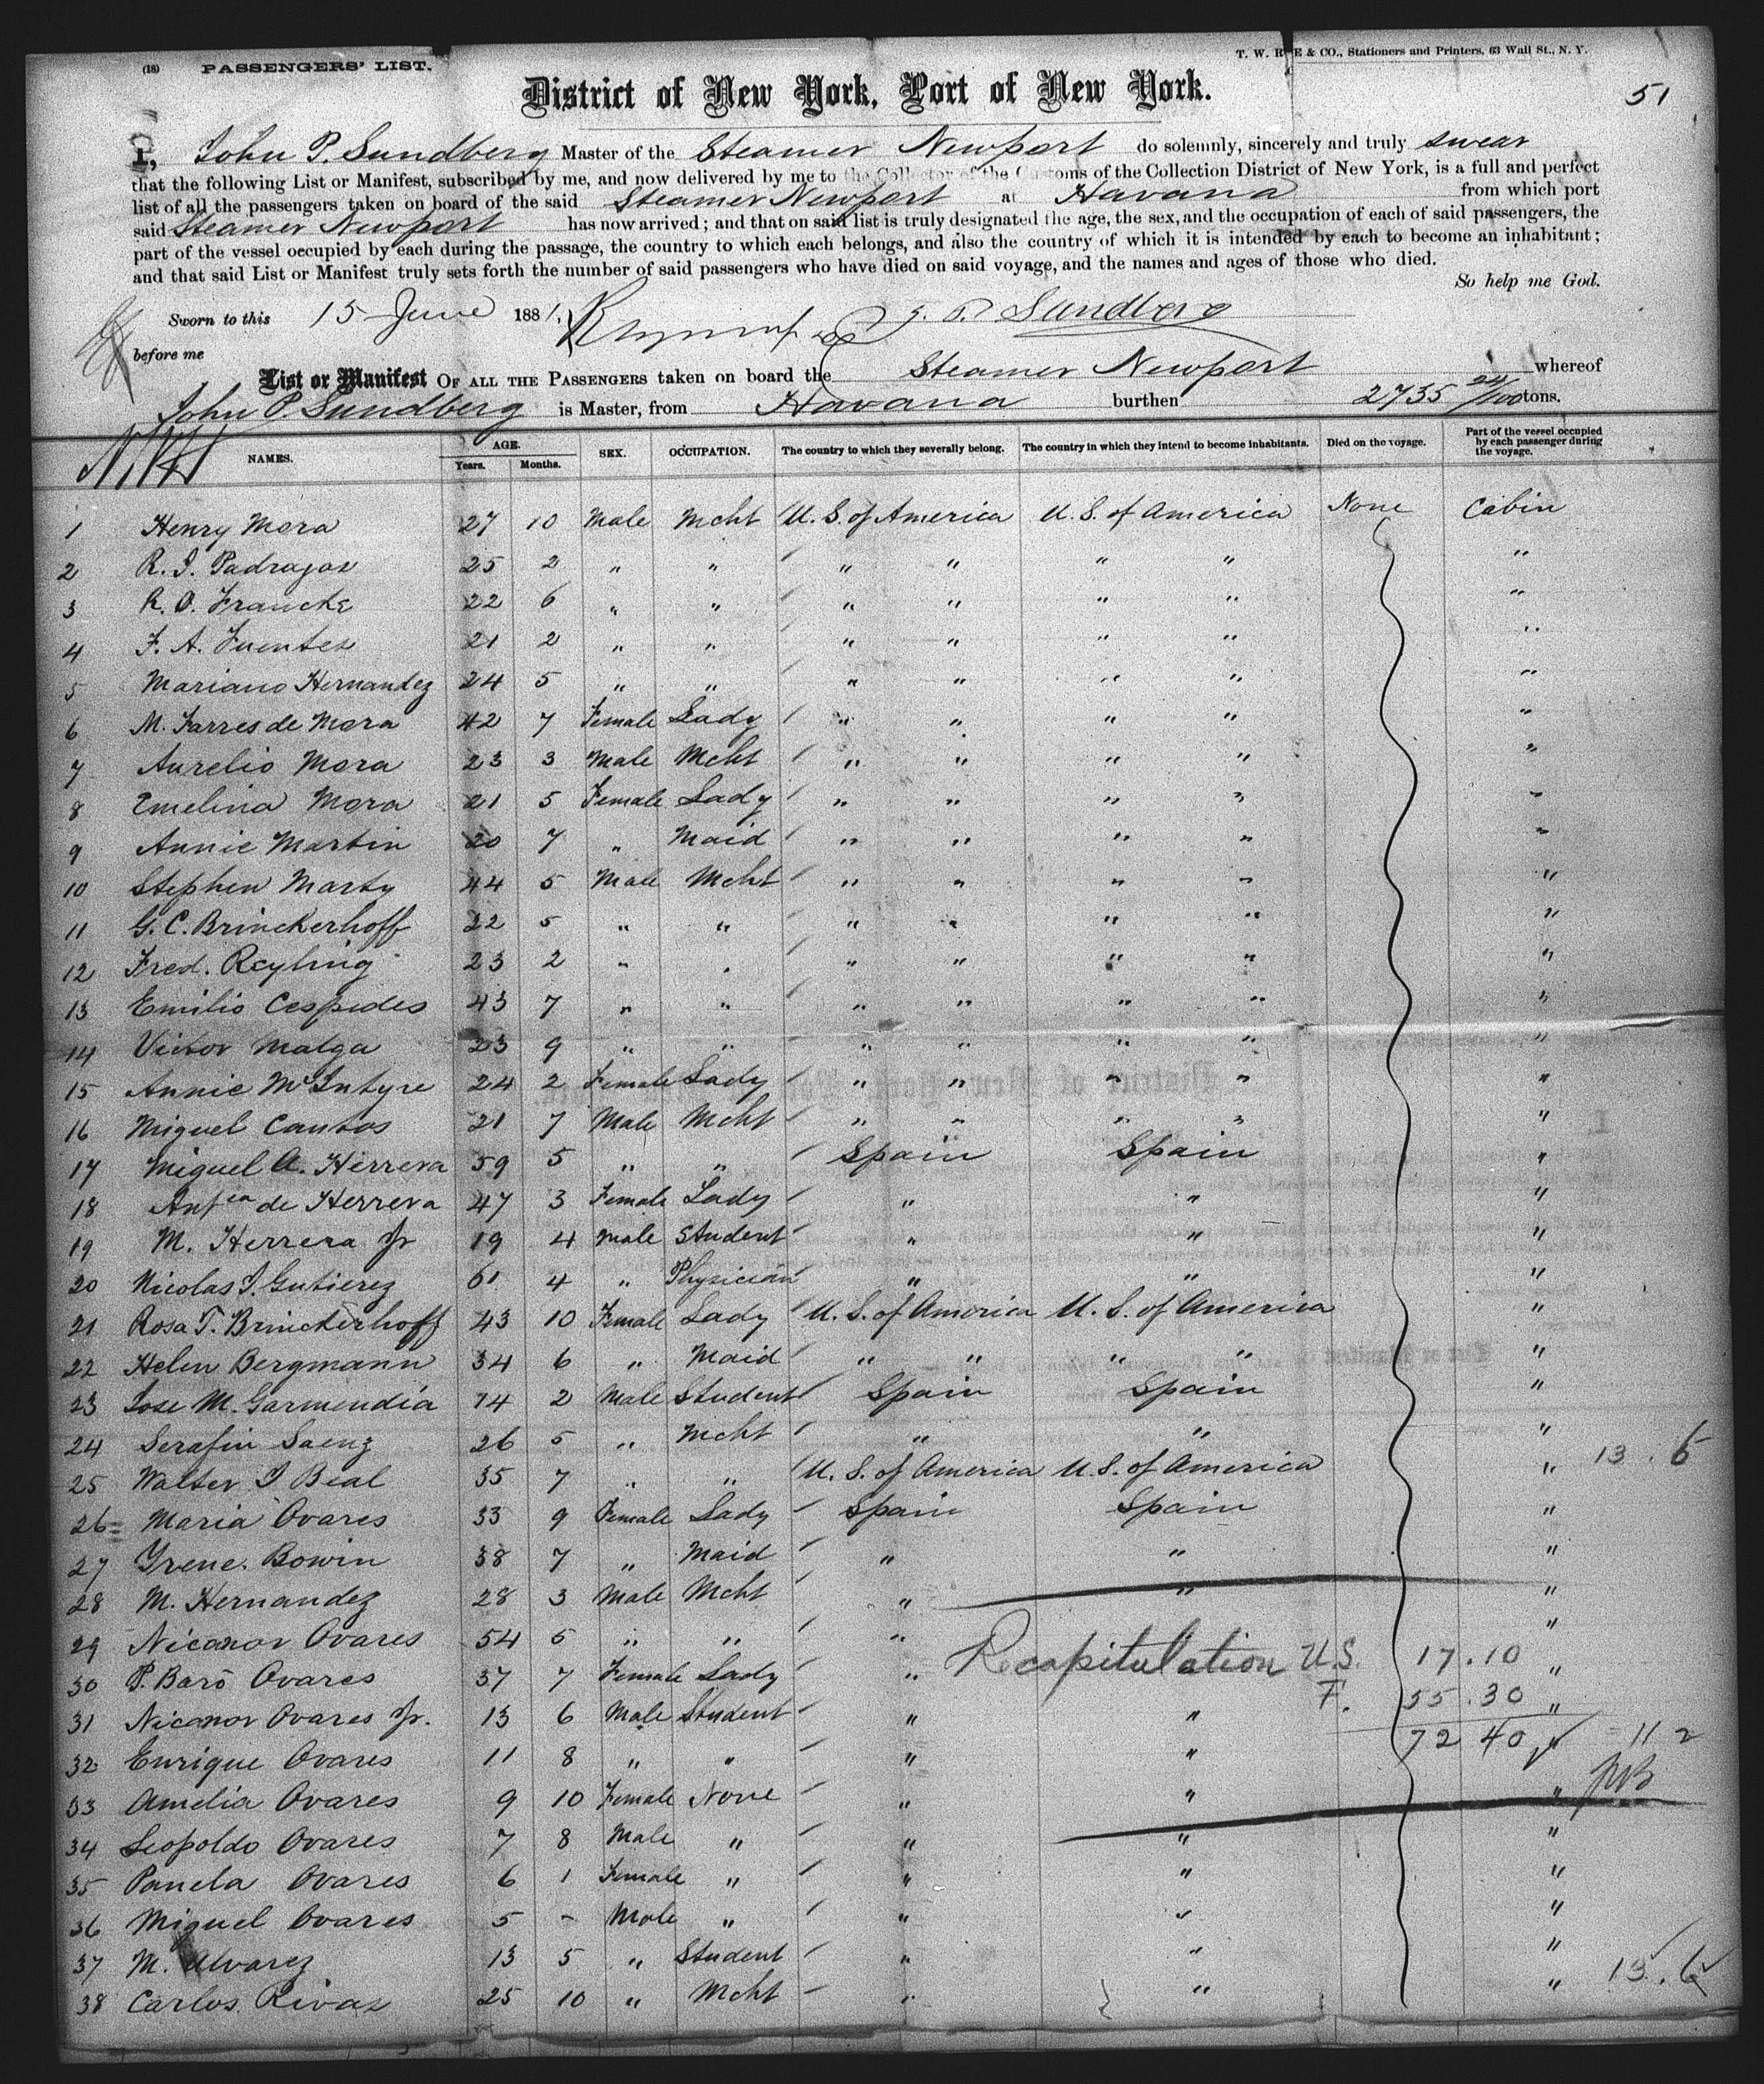 (18) PASSENGERS' LIST.
T. W. & CO., Stationers and Printers, 63 Wall St., N. Y.
51
District of New York, Port of New York.
I, John P. Sundberg Master of the Steamer Newport do solemnly, sincerely and truly swear
that the following List or Manifest, subscribed by me, and now delivered by me to the Collector of the Customs of the Collection District of New York, is a full and perfect
list of all the passengers taken on board of the said Steamer Newport at Havana from which port
said Steamer Newport has now arrived; and that on said list is truly designated the age, the sex, and the occupation of each of said passengers, the
part of the vessel occupied by each during the passage, the country to which each belongs, and also the country of which it is intended by each to become an inhabitant;
and that said List or Manifest truly sets forth the number of said passengers who have died on said voyage, and the names and ages of those who died.
So help me God.
Sworn to this 15 June 1881, J. P. Sundberg
before me
List or Manifest OF ALL THE PASSENGERS taken on board the Steamer Newport whereof
John P. Sundberg is Master, from Havana burthen 2735 24/100 tons.
NAMES. AGE. Years. Months. SEX. OCCUPATION. The country to which they severally belong. The country in which they intend to become inhabitants. Died on the voyage. Part of the vessel occupied by each passenger during the voyage.
1 Henry Mora 27 10 Male Mcht U. S. of America U. S. of America None Cabin
2 R. I. Padrajas 25 2 " " " " " " "
3 R. O. Francke 22 6 " " " " " " "
4 F. A. Fuentes 21 2 " " " " " " "
5 Mariano Hernandez 24 5 " " " " " " "
6 M. Farres de Mora 42 7 Female Lady " " " " "
7 Aurelio Mora 23 3 Male Mcht " " " " "
8 Emelina Mora 21 5 Female Lady " " " " "
9 Annie Martin 20 7 " Maid " " " " "
10 Stephen Marty 44 5 Male Mcht " " " " "
11 G. C. Brinckerhoff 22 5 " " " " " " "
12 Fred. Reyling 23 2 " " " " " " "
13 Emilio Cespedes 43 7 " " " " " " "
14 Victor Malga 23 9 " " " " " " "
15 Annie McIntyre 24 2 Female Lady " " " " "
16 Miguel Cantos 21 7 Male Mcht " " " " "
17 Miguel A. Herrera 59 5 " " Spain Spain "
18 Antca de Herrera 47 3 Female Lady " " "
19 M. Herrera Jr 19 4 Male Student " " "
20 Nicolas J. Gutierez 61 4 " Physician " " "
21 Rosa T. Brinckerhoff 43 10 Female Lady U. S. of America U. S. of America "
22 Helen Bergmann 34 6 " Maid " " " " "
23 Jose M. Garmendia 14 2 Male Student Spain Spain "
24 Serafin Saenz 26 5 " Mcht " " " 13. 6
25 Walter I Beal 35 7 " " U. S. of America U. S. of America "
26 Maria Ovares 33 9 Female Lady Spain Spain "
27 Yrene Bowin 38 7 " Maid " " "
28 M. Hernandez 28 3 Male Mcht " " "
29 Nicanor Ovares 54 5 " " " "
30 P. Baró Ovares 37 7 Female Lady " Recapitulation U.S. 17.10 "
31 Nicanor Ovares Jr. 13 6 Male Student " " F. 55.30 "
32 Enrique Ovares 11 8 " " " " 72 40 " = 112
33 Amelia Ovares 9 10 Female None " " "
34 Leopoldo Ovares 7 8 Male " " " "
35 Panela Ovares 6 1 Female " " " "
36 Miguel Ovares 5 - Male " " " "
37 M. Alvarez 13 5 " Student " " "
38 Carlos Rivas 25 10 " Mcht " " " 13. 6